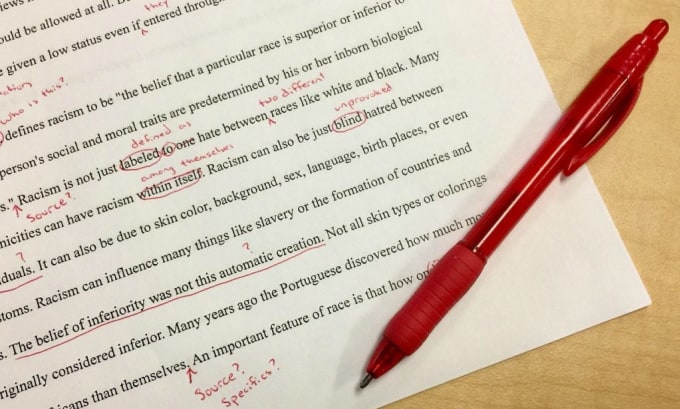 ould be allowed at all.
they
e given a low status even if entered through
who is this?
defines racism to be "the belief that a particular race is superior or inferior to
two different
person's social and moral traits are predetermined by his or her inborn biological
defined as
unprovoked
s." Racism is not just labeled to one hate between races like white and black. Many
Source?
among themselves
nicities can have racism within itself. Racism can also be just blind hatred between
?
duals. It can also be due to skin color, background, sex, language, birth places, or even
?
stoms. Racism can influence many things like slavery or the formation of countries and
s. The belief of inferiority was not this automatic creation. Not all skin types or colorings
riginally considered inferior. Many years ago the Portuguese discovered how much
icans than themselves. An important feature of race is that how
Source?
Specifics?